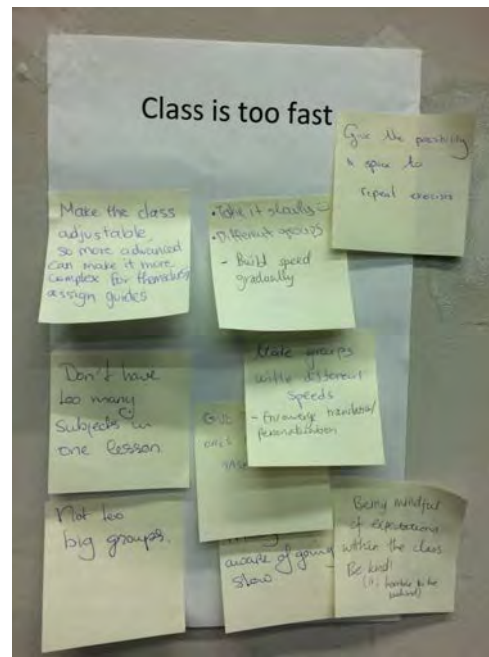 Class is too fast
Give the possibility
& space to
repeat exercises
Make the class
adjustable,
so more advanced
can make it more
complex for themselves
assign guides
• Take it slowly
• Different groups
- Build speed
gradually
Don't have
too many
subjects in
one lesson
Make groups
with different
speeds
- Encourage translation/
personalisation
Give
Not too
big groups.
aware of going
slow
Being mindful
of expectations
within the class.
Be kind!
(it's horrible to be
behind)